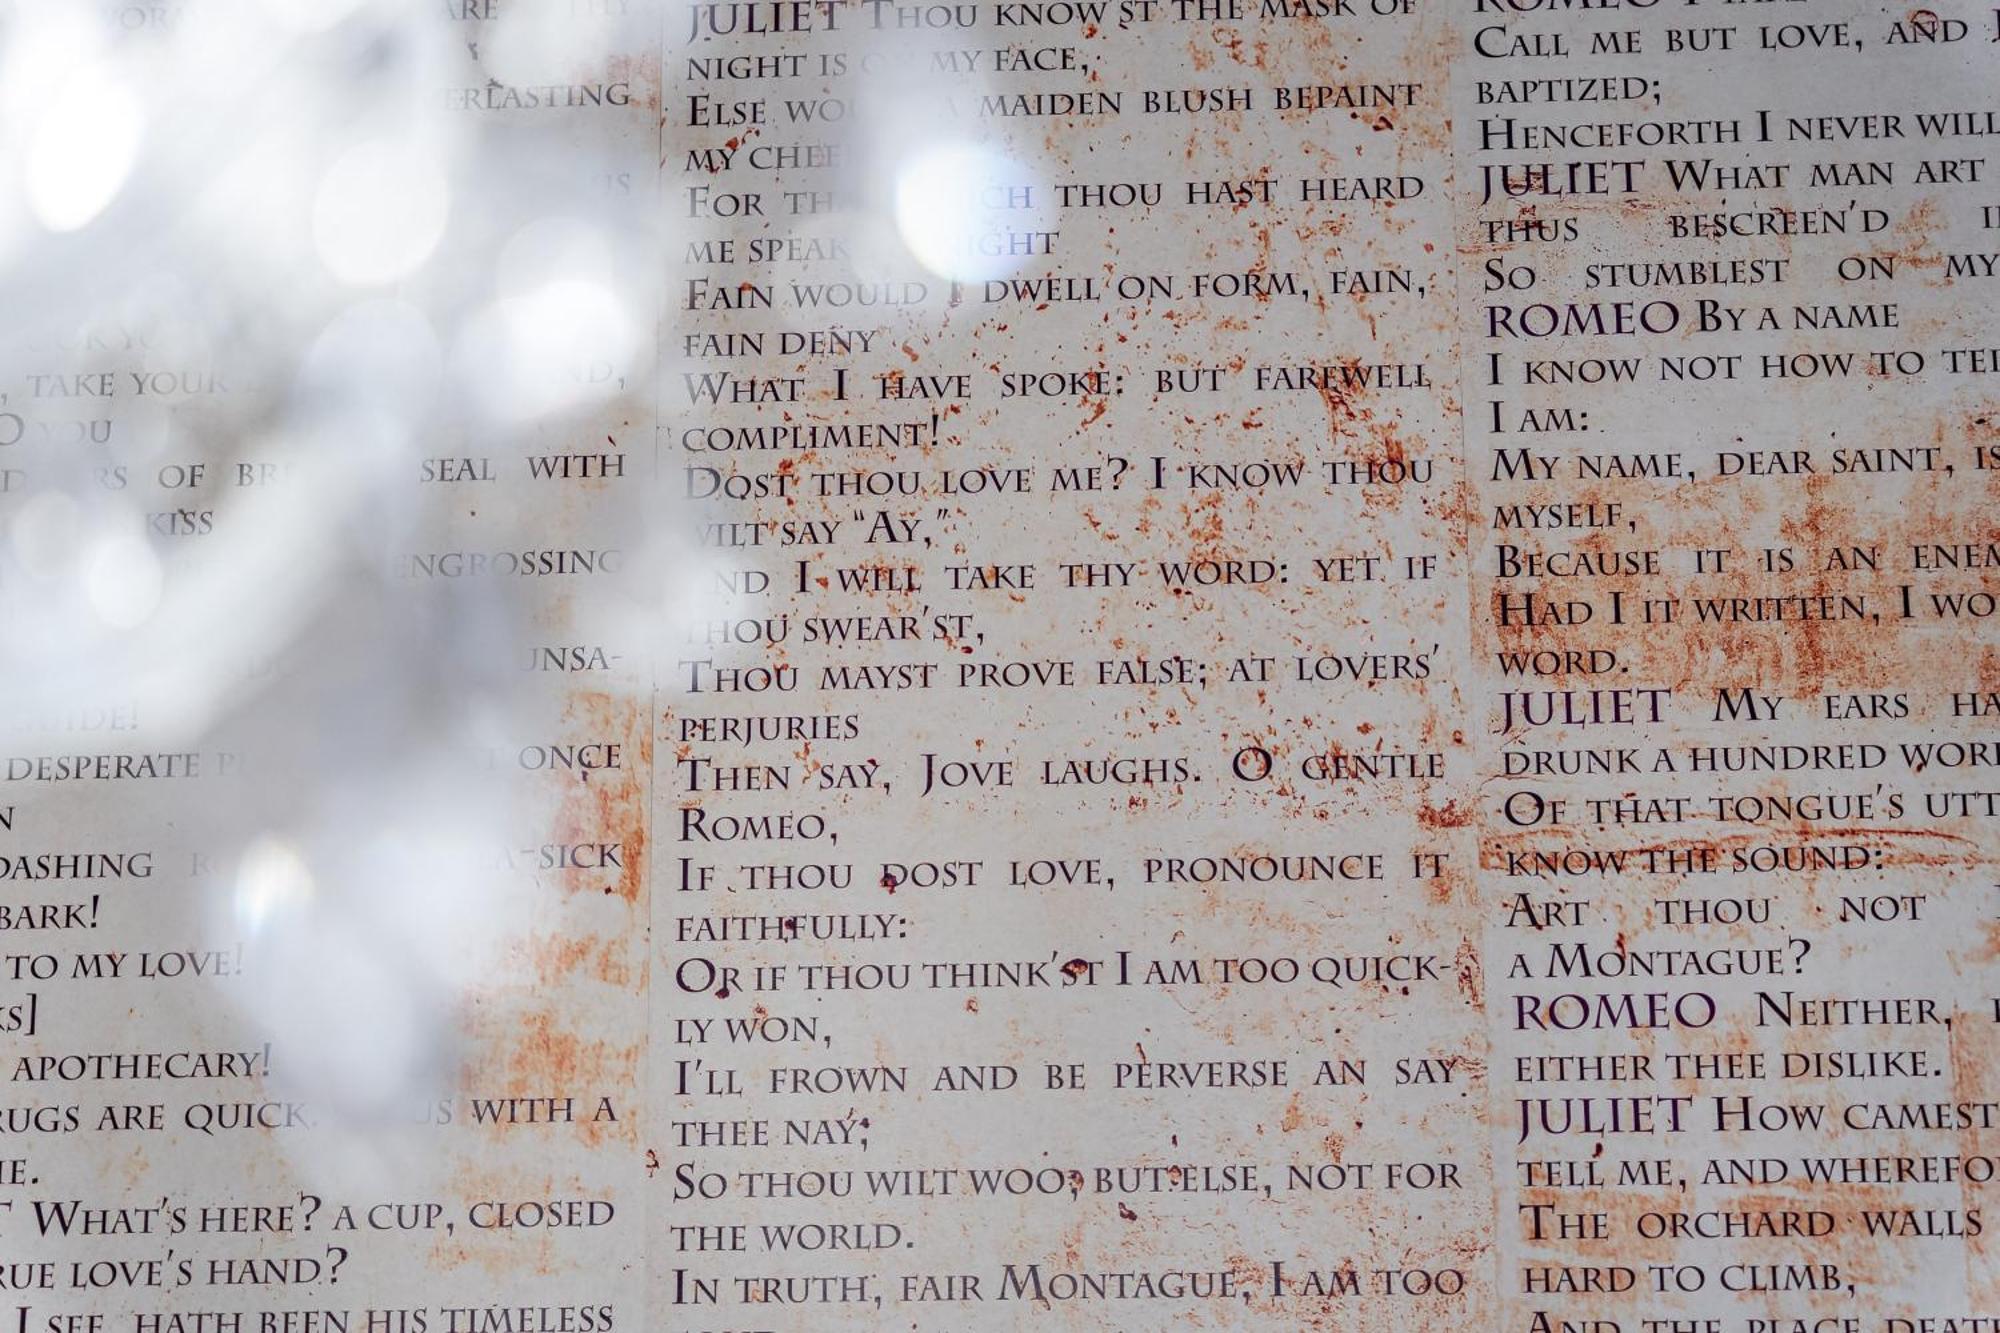 ARE THY
ERLASTING
US
, TAKE YOUR
O YOU
RS OF SEAL WITH
KISS
ENGROSSING
UNSA-
GUIDE!
DESPERATE ONCE
N
DASHING -SICK
BARK!
TO MY LOVE!
KS]
APOTHECARY!
RUGS ARE QUICK. WITH A
IE.
T WHAT'S HERE? A CUP, CLOSED
RUE LOVE'S HAND?
I SEE, HATH BEEN HIS TIMELESS
JULIET THOU KNOW'ST THE MASK OF
NIGHT IS ON MY FACE,
ELSE A MAIDEN BLUSH BEPAINT
MY
FOR THOU HAST HEARD
ME SPEAK
FAIN WOULD I DWELL ON FORM, FAIN,
FAIN DENY
WHAT I HAVE SPOKE: BUT FAREWELL
COMPLIMENT!
DOST THOU LOVE ME? I KNOW THOU
WILT SAY “AY,”
AND I WILL TAKE THY WORD: YET IF
THOU SWEAR'ST,
THOU MAYST PROVE FALSE; AT LOVERS'
PERJURIES
THEN SAY, JOVE LAUGHS. O GENTLE
ROMEO,
IF THOU DOST LOVE, PRONOUNCE IT
FAITHFULLY:
OR IF THOU THINK'ST I AM TOO QUICK-
LY WON,
I'LL FROWN AND BE PERVERSE AN SAY
THEE NAY;
SO THOU WILT WOO; BUT ELSE, NOT FOR
THE WORLD.
IN TRUTH, FAIR MONTAGUE, I AM TOO
ROMEO I TAKE
CALL ME BUT LOVE, AND I
BAPTIZED;
HENCEFORTH I NEVER WILL
JULIET WHAT MAN ART
THUS BESCREEN'D I
SO STUMBLEST ON MY
ROMEO BY A NAME
I KNOW NOT HOW TO TEL
I AM:
MY NAME, DEAR SAINT, IS
MYSELF,
BECAUSE IT IS AN ENEM
HAD I IT WRITTEN, I WO
WORD.
JULIET MY EARS HA
DRUNK A HUNDRED WOR
OF THAT TONGUE'S UTT
KNOW THE SOUND:
ART THOU NOT
A MONTAGUE?
ROMEO NEITHER,
EITHER THEE DISLIKE.
JULIET HOW CAMEST
TELL ME, AND WHEREFO
THE ORCHARD WALLS
HARD TO CLIMB,
AND THE PLACE DEATH